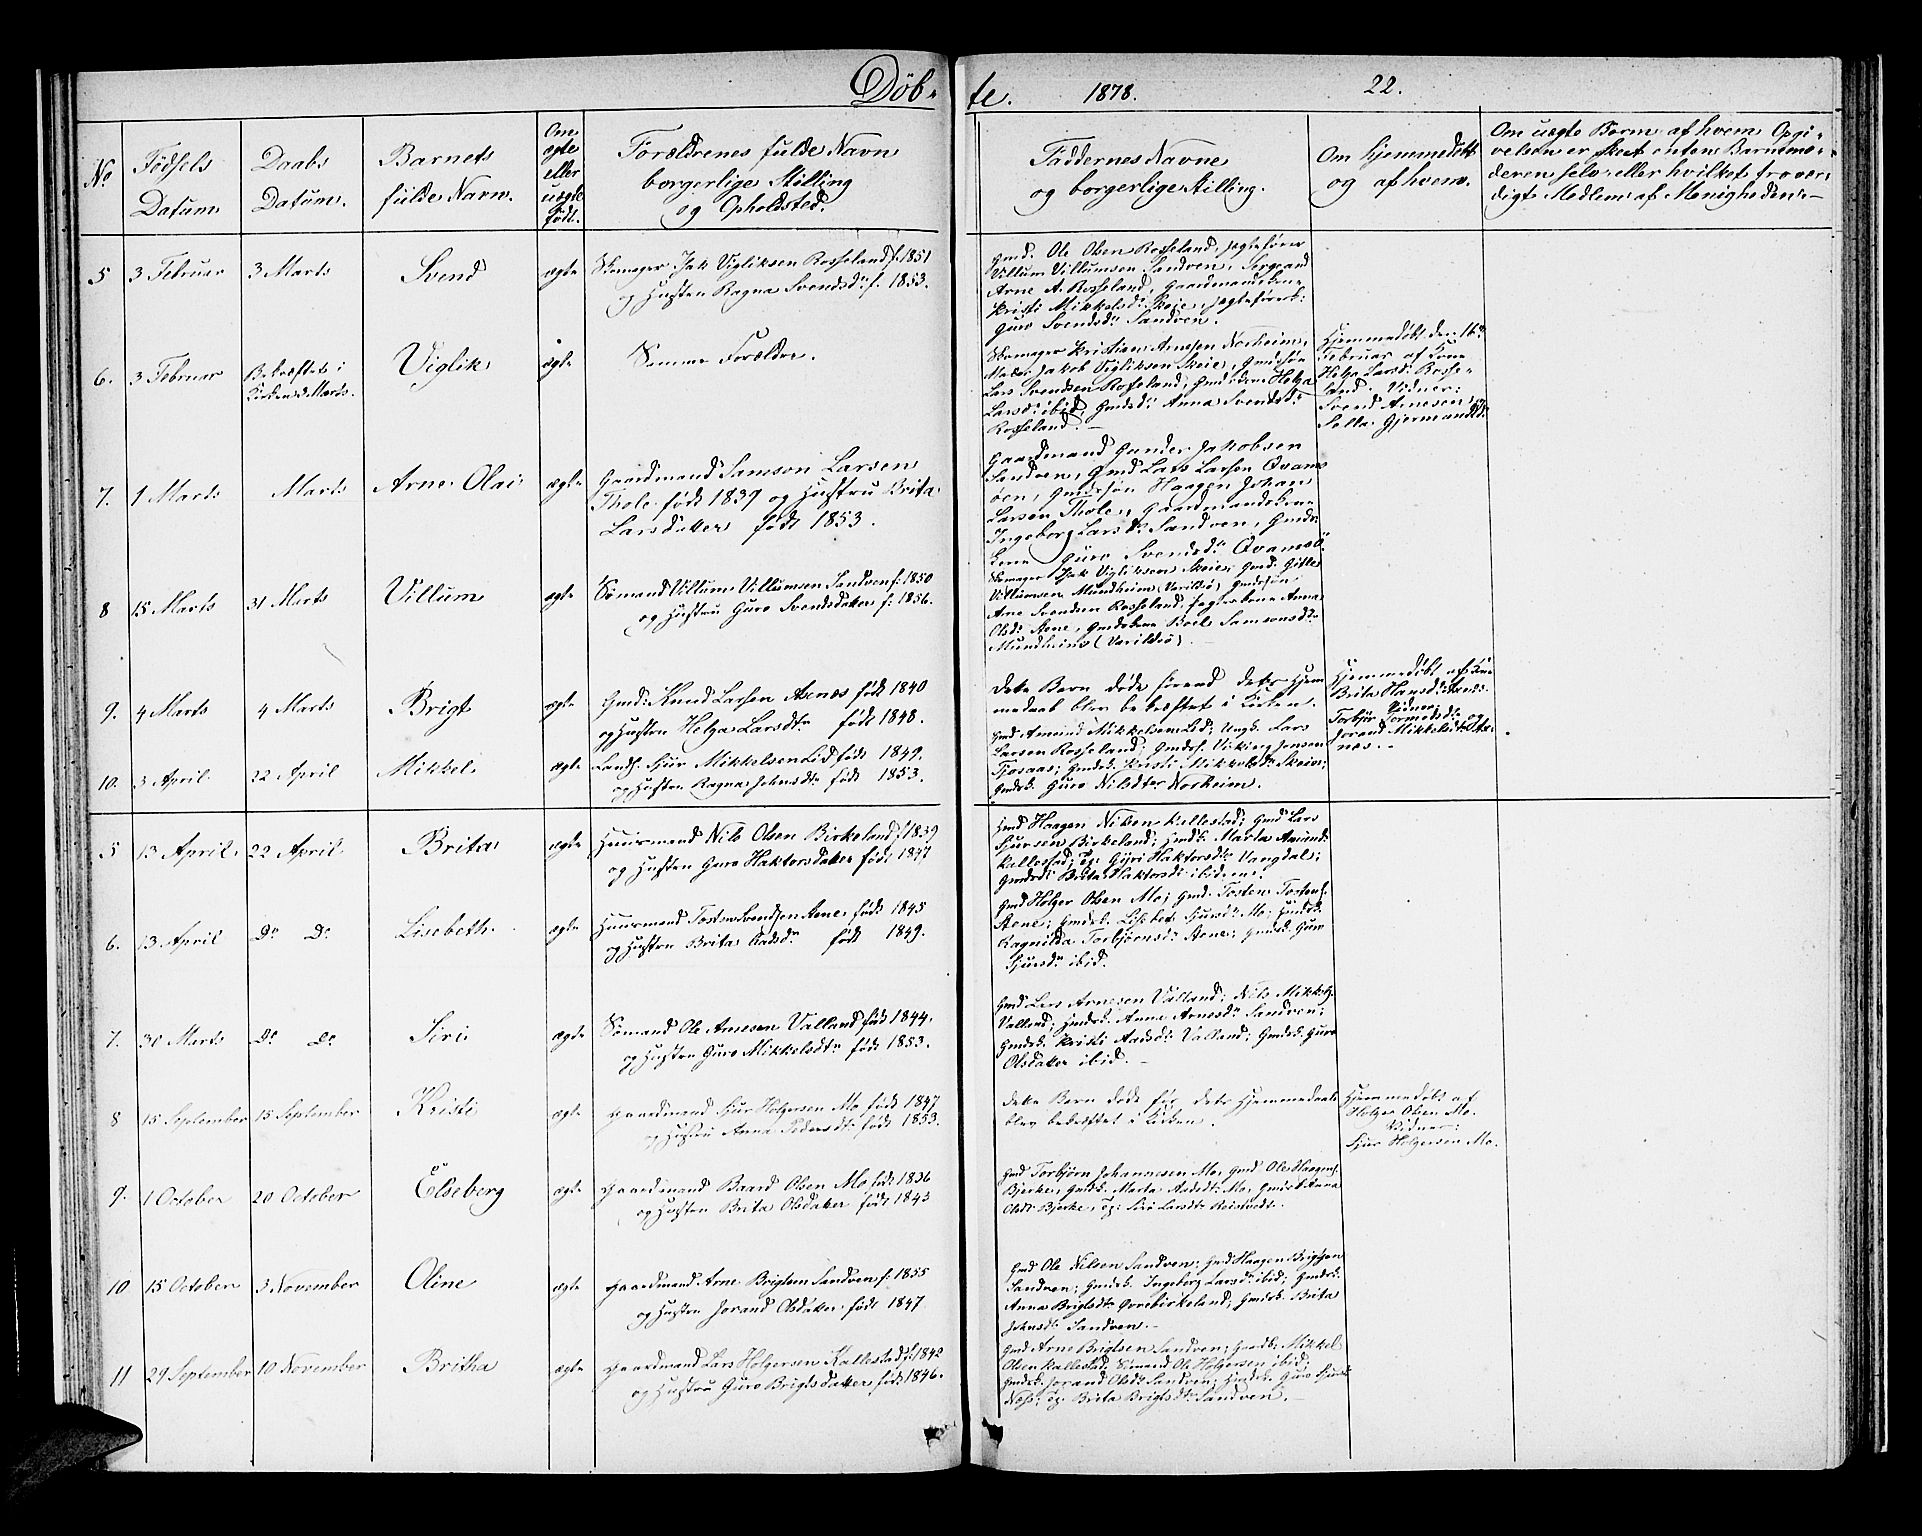 Døb-
te.
1878.
22.
No
Fødsels
Datum
Daabs
Datum.
Barnets
fulde Navn.
Om
ægte
eller
uægte
født.
Forældrenes fulde Navn
borgerlige Stilling
og Opholdsted.
Faddernes Navne
og borgerlige Stilling.
Om hjemmedøbt
og af hvem.
Om uægte Børn af hvem Opgi-
velsen er skeet enten Barnemo-
deren selv eller hvilket trover-
digt Medlem af Menigheden.
5
3 Februar
3 Marts
Svend
ægte
Skomager Jak Vigliksen Rosseland f. 1851
og Hustru Ragna Svendsd. f. 1853.
Gmd. Ole Olsen Rosseland, Jægtefører
Villum Villumsen Sandven, Sergeand
Arne A. Rosseland, Gaardmandskone
Kristi Mikkelsdr Skeie, Jægteførerk.
Guro Svendsdr Sandven.
6.
3 Februar
Bekræftet i
Kirken Marts.
Viglik
ægte
Samme Forældre.
Skomager Kristian Arnesen Norheim,
Jakob Vigliksen Skeie, Gmdssøn
Lars Svendsen Rosseland, Helga
Larsdr ibid, Gmdsdr Anna Svendsdr
Rosseland.
Hjemmedøbt den 16de
Februar af Kone
Helga Larsdr Rosse-
land. Vidner:
Svend Arnesen,
7.
1 Marts
Marts
Arne Olai
ægte
Gaardmand Samson Larsen
Thole født 1839 og Hustru Brita
Larsdatter født 1853.
Gaardmand Gunder Jakobsen
Sandven, Gmd Lars Larsen Qvams
øen, Gmdssøn Haagen Johan
Larsen Thole, Gaardmandskone
Ingeborg Larsdr Sandven, Gmds-
kone Guro Svendsdr Qvamsö.
8
15 Marts
31 Marts
Villum
ægte
Sømand Villum Villumsen Sandven f. 1850
og Hustru Guro Svendsdatter f. 1856.
Skomager Jak Vigliksen Skeie, Gmd. Gitle
Villumsen Mundheim (Varildsö) Gmdssøn
Arne Svendsen Rosseland, Anna
Olsdr Aene, Gmdskone Samsonsdr
Mundheim (Varildsö).
9.
4 Marts
4 Marts
Brigt
ægte
Gmd. Knud Larsen Axnes født 1840
og Hustru Helga Larsdtr født 1848.
Dette Barn døde førend dets Hjem
medaab blev bekræftet i Kirken.
Hjemmedøbt af
Brita Hansdtr
Vidner
10.
3 April
22 April
Mikkel
ægte
Landh. Sjur Mikkelsen Lid født 1849.
og Hustru Ragna Johnsdtr født 1853.
Gmd Amund Mikkelsen Lid, Ungk. Lars
Larsen Rosseland, Gmdss. Viking Jensen
Tjosaas; Gmdsk. Kristi Mikkelsdtr Skeie;
Gmdsk. Guro Nilsdtr Norheim.
5
13 April
22 April
Brita
ægte
Huusmand Nils Olsen Birkeland f. 1839
og Hustru Guro Haktorsdatter født 1847
Gmd Haagen Nilsen Kallestad; Gmd Lars
Sjursen Birkeland; Gmdsk. Marta
Kallestad; Pg. Gyri Haktorsdtr Vangdal;
Gmdsdr Brita Haktorsdr ibidem.
6.
13 April
Do Do
Lisebeth
ægte
Huusmand Tosten Svendsen Aene født 1845
og Hustru Brita født 1849.
Gmd Holger Olsen Mo; Gmd. Tosten
Aene; Gmdsk. Lisbet Sjursdr Mo; Gmdsk.
Ragnilda Torbjørnsdr Aene; Gmdsk. Guro
Sjursdr ibid.
7.
30 Marts
Do Do
Siri
ægte
Sømand Ole Arnesen Valland født 1844.
og Hustru Guro Mikkelsdtr født 1853.
Gmd Lars Arnesen Valland; Nils
Valland; Gmdsk. Anna Arnesdtr Sandven;
Gmdsk. Kristi Valland; Gmdsk. Guro
Olsdatter ibid.
8
15 September
15 September
Kristi
ægte
Gaardmand Sjur Holgersen Mo født 1847
og Hustru Anna Pedersdtr født 1853.
Dette Barn døde før dets Hjemmedaab
blev bekræftet i Kirken.
Hjemmedøbt af
Holger Olsen Mo.
Vidner:
Sjur Holgersen Mo.
9.
1 October
20 October
Elseberg
ægte
Gaardmand Baard Olsen Mo født 1836
og Hustru Brita Olsdatter født 1843
Gmd Torbjørn Johannesen Mo, Gmd Ole
Bjerke, Gmdsk. Marta Mo, Anna
Olsdr Bjerke, Pg. Siri Larsdtr
10
15 October
3 November
Oline
ægte
Gaardmand Arne Brigtsen Sandven f. 1855
og Hustru Jorand Olsdatter født 1847
Gmd Ole Nilsen Sandven; Gmd Haagen Brigtsen
Sandven; Gmdsk. Ingeborg Larsdr ibid; Gmdsk.
Anna Brigtsdtr Øvrebirkeland; Gmdsk. Brita
Johnsdr Sandven.
11
29 September
10 November
Britha
ægte
Gaardmand Lars Holgersen Kallestad f. 1842
og Hustru Guro Brigtsdatter født 1846.
Gmd Arne Brigtsen Sandven; Mikkel
Olsen Kallestad, Sømand Ole Holgersen ibid;
Gmdsk. Jorand Olsdr Sandven; Gmdsk. Guro
Næs; Pg. Brita Brigtsdtr Sandven.